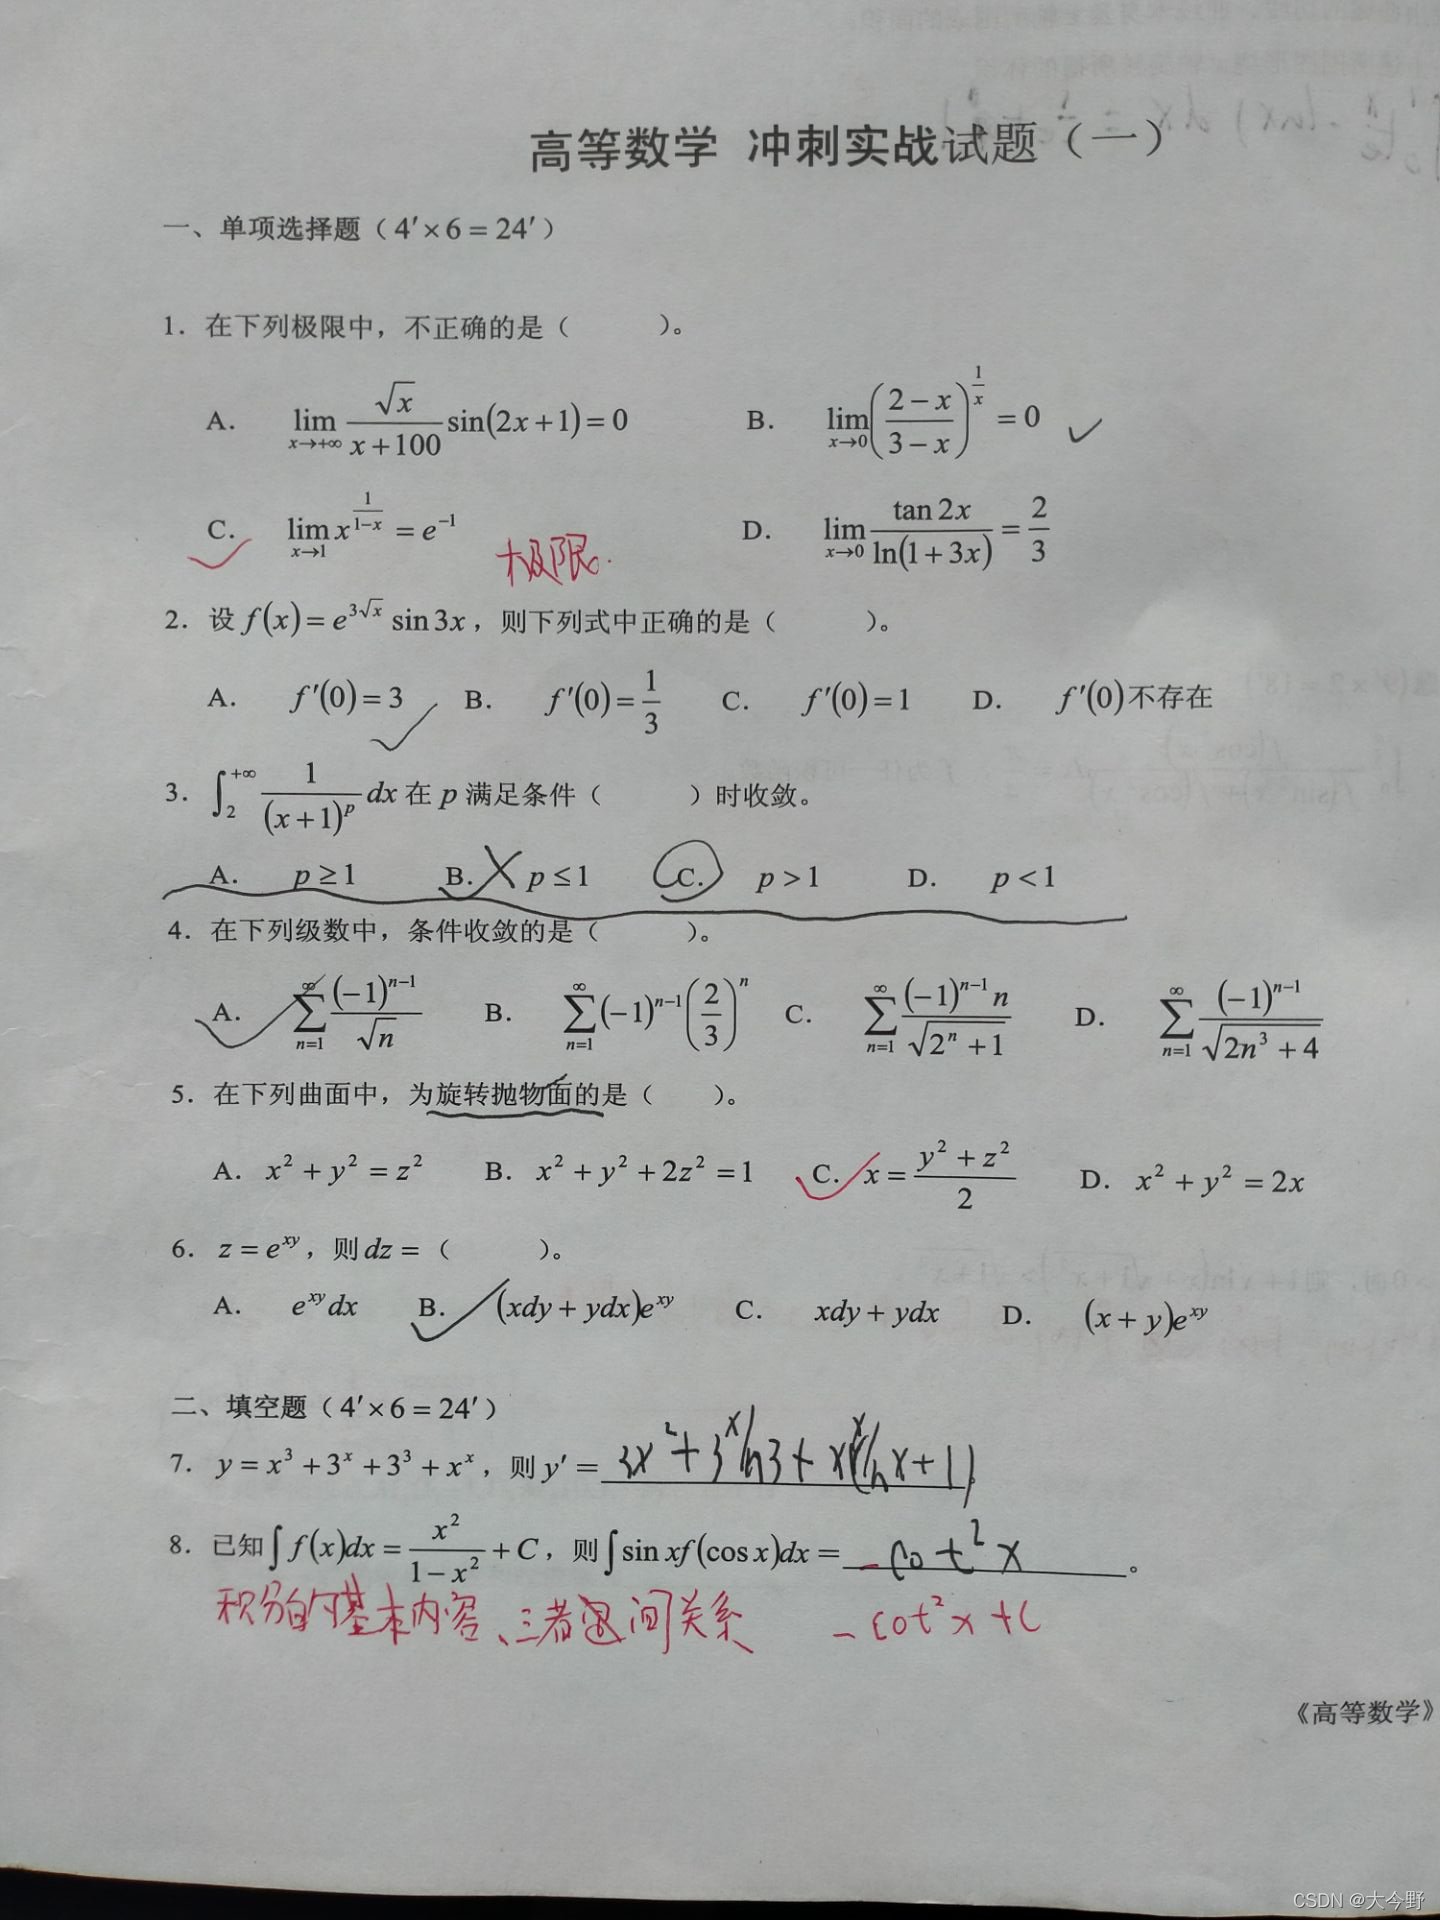 高等数学 冲刺实战试题（一）
一、单项选择题（4′×6=24′）
1. 在下列极限中，不正确的是（ ）。
A. lim x→+∞ √x/(x+100) sin(2x+1)=0 B. lim x→0 ((2-x)/(3-x))^(1/x) =0
C. lim x→1 x^(1/(1-x)) = e^(-1) D. lim x→0 tan 2x/ln(1+3x) = 2/3
极限.
2. 设 f(x)=e^(3√x) sin 3x，则下列式中正确的是（ ）。
A. f′(0)=3 B. f′(0)=1/3 C. f′(0)=1 D. f′(0)不存在
3. ∫_2^(+∞) 1/(x+1)^p dx 在 p 满足条件（ ）时收敛。
A. p≥1 B. p≤1 C. p>1 D. p<1
4. 在下列级数中，条件收敛的是（ ）。
A. ∑_(n=1)^∞ (-1)^(n-1)/√n B. ∑_(n=1)^∞ (-1)^(n-1)(2/3)^n C. ∑_(n=1)^∞ (-1)^(n-1) n/√(2^n+1) D. ∑_(n=1)^∞ (-1)^(n-1)/√(2n³+4)
5. 在下列曲面中，为旋转抛物面的是（ ）。
A. x²+y²=z² B. x²+y²+2z²=1 C. x=(y²+z²)/2 D. x²+y²=2x
6. z=e^(xy)，则 dz=（ ）。
A. e^(xy)dx B. (xdy+ydx)e^(xy) C. xdy+ydx D. (x+y)e^(xy)
二、填空题（4′×6=24′）
7. y=x³+3^x+3³+x^x，则 y′= 3x²+3^x ln3+x^x(lnx+1)
8. 已知∫f(x)dx=x²/(1-x²)+C，则∫sin xf(cos x)dx= -cot²x 。
积分的基本内容、三者 间关系 -cot²x+C
《高等数学》
CSDN @大今野